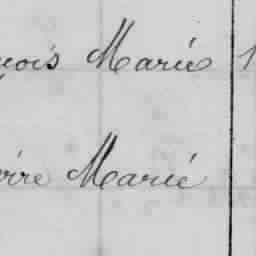 çois Marie 1
erre Marie